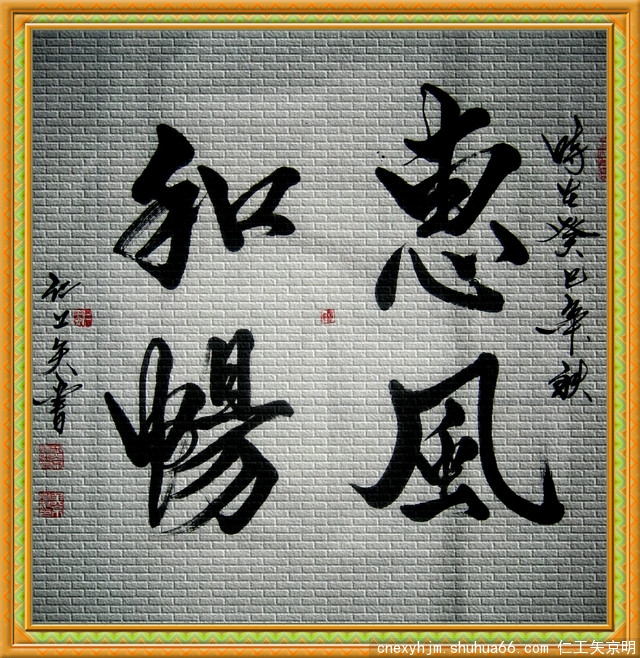 時在癸巳年秋
惠風
和暢
仁工矢書
cnexyhjm.shuhua66.com 仁工矢京明